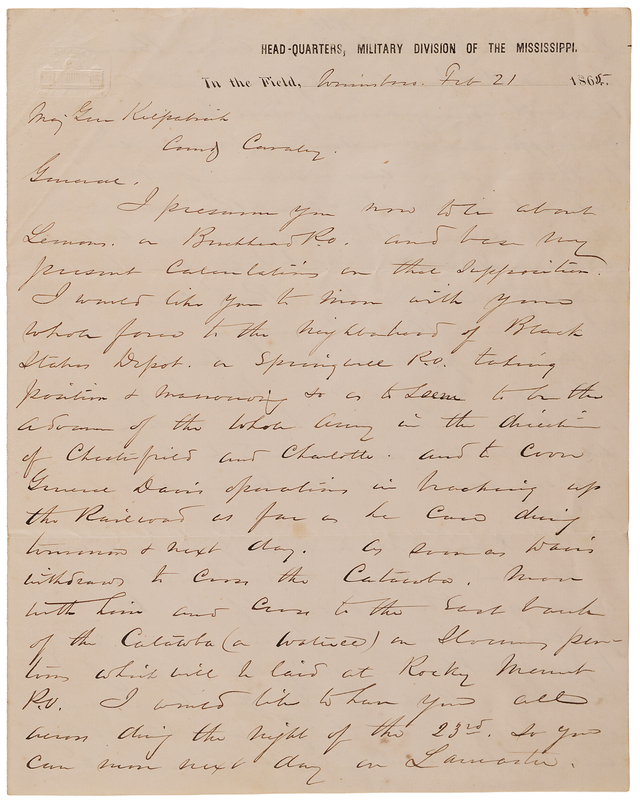 HEAD-QUARTERS, MILITARY DIVISION OF THE MISSISSIPPI,
In the Field, Winnsboro. Feb 21 1865.
Maj Gen Kilpatrick
Comdg Cavalry.
General.
I presume you now to be about
Lemons. or Buckhead P.O. and base my
present Calculations on that supposition.
I would like you to move with your
whole force to the neighborhood of Black
Stakes Depot. or Springwell P.O. taking
position & manoeuvring so as to seem to be the
advance of the whole army in the direction
of Chesterfield and Charlotte. and to cover
General Davis operations in breaking up
the Railroad as far as he can during
tomorrow & next day. As soon as Davis
withdraws to cross the Catawba. move
with him and cross to the East bank
of the Catawba (or Wateree) on Slocums pon-
toons which will be laid at Rocky Mount
P.O. I would like to have you all
across during the night of the 23rd. so you
can move next day on Lancaster.